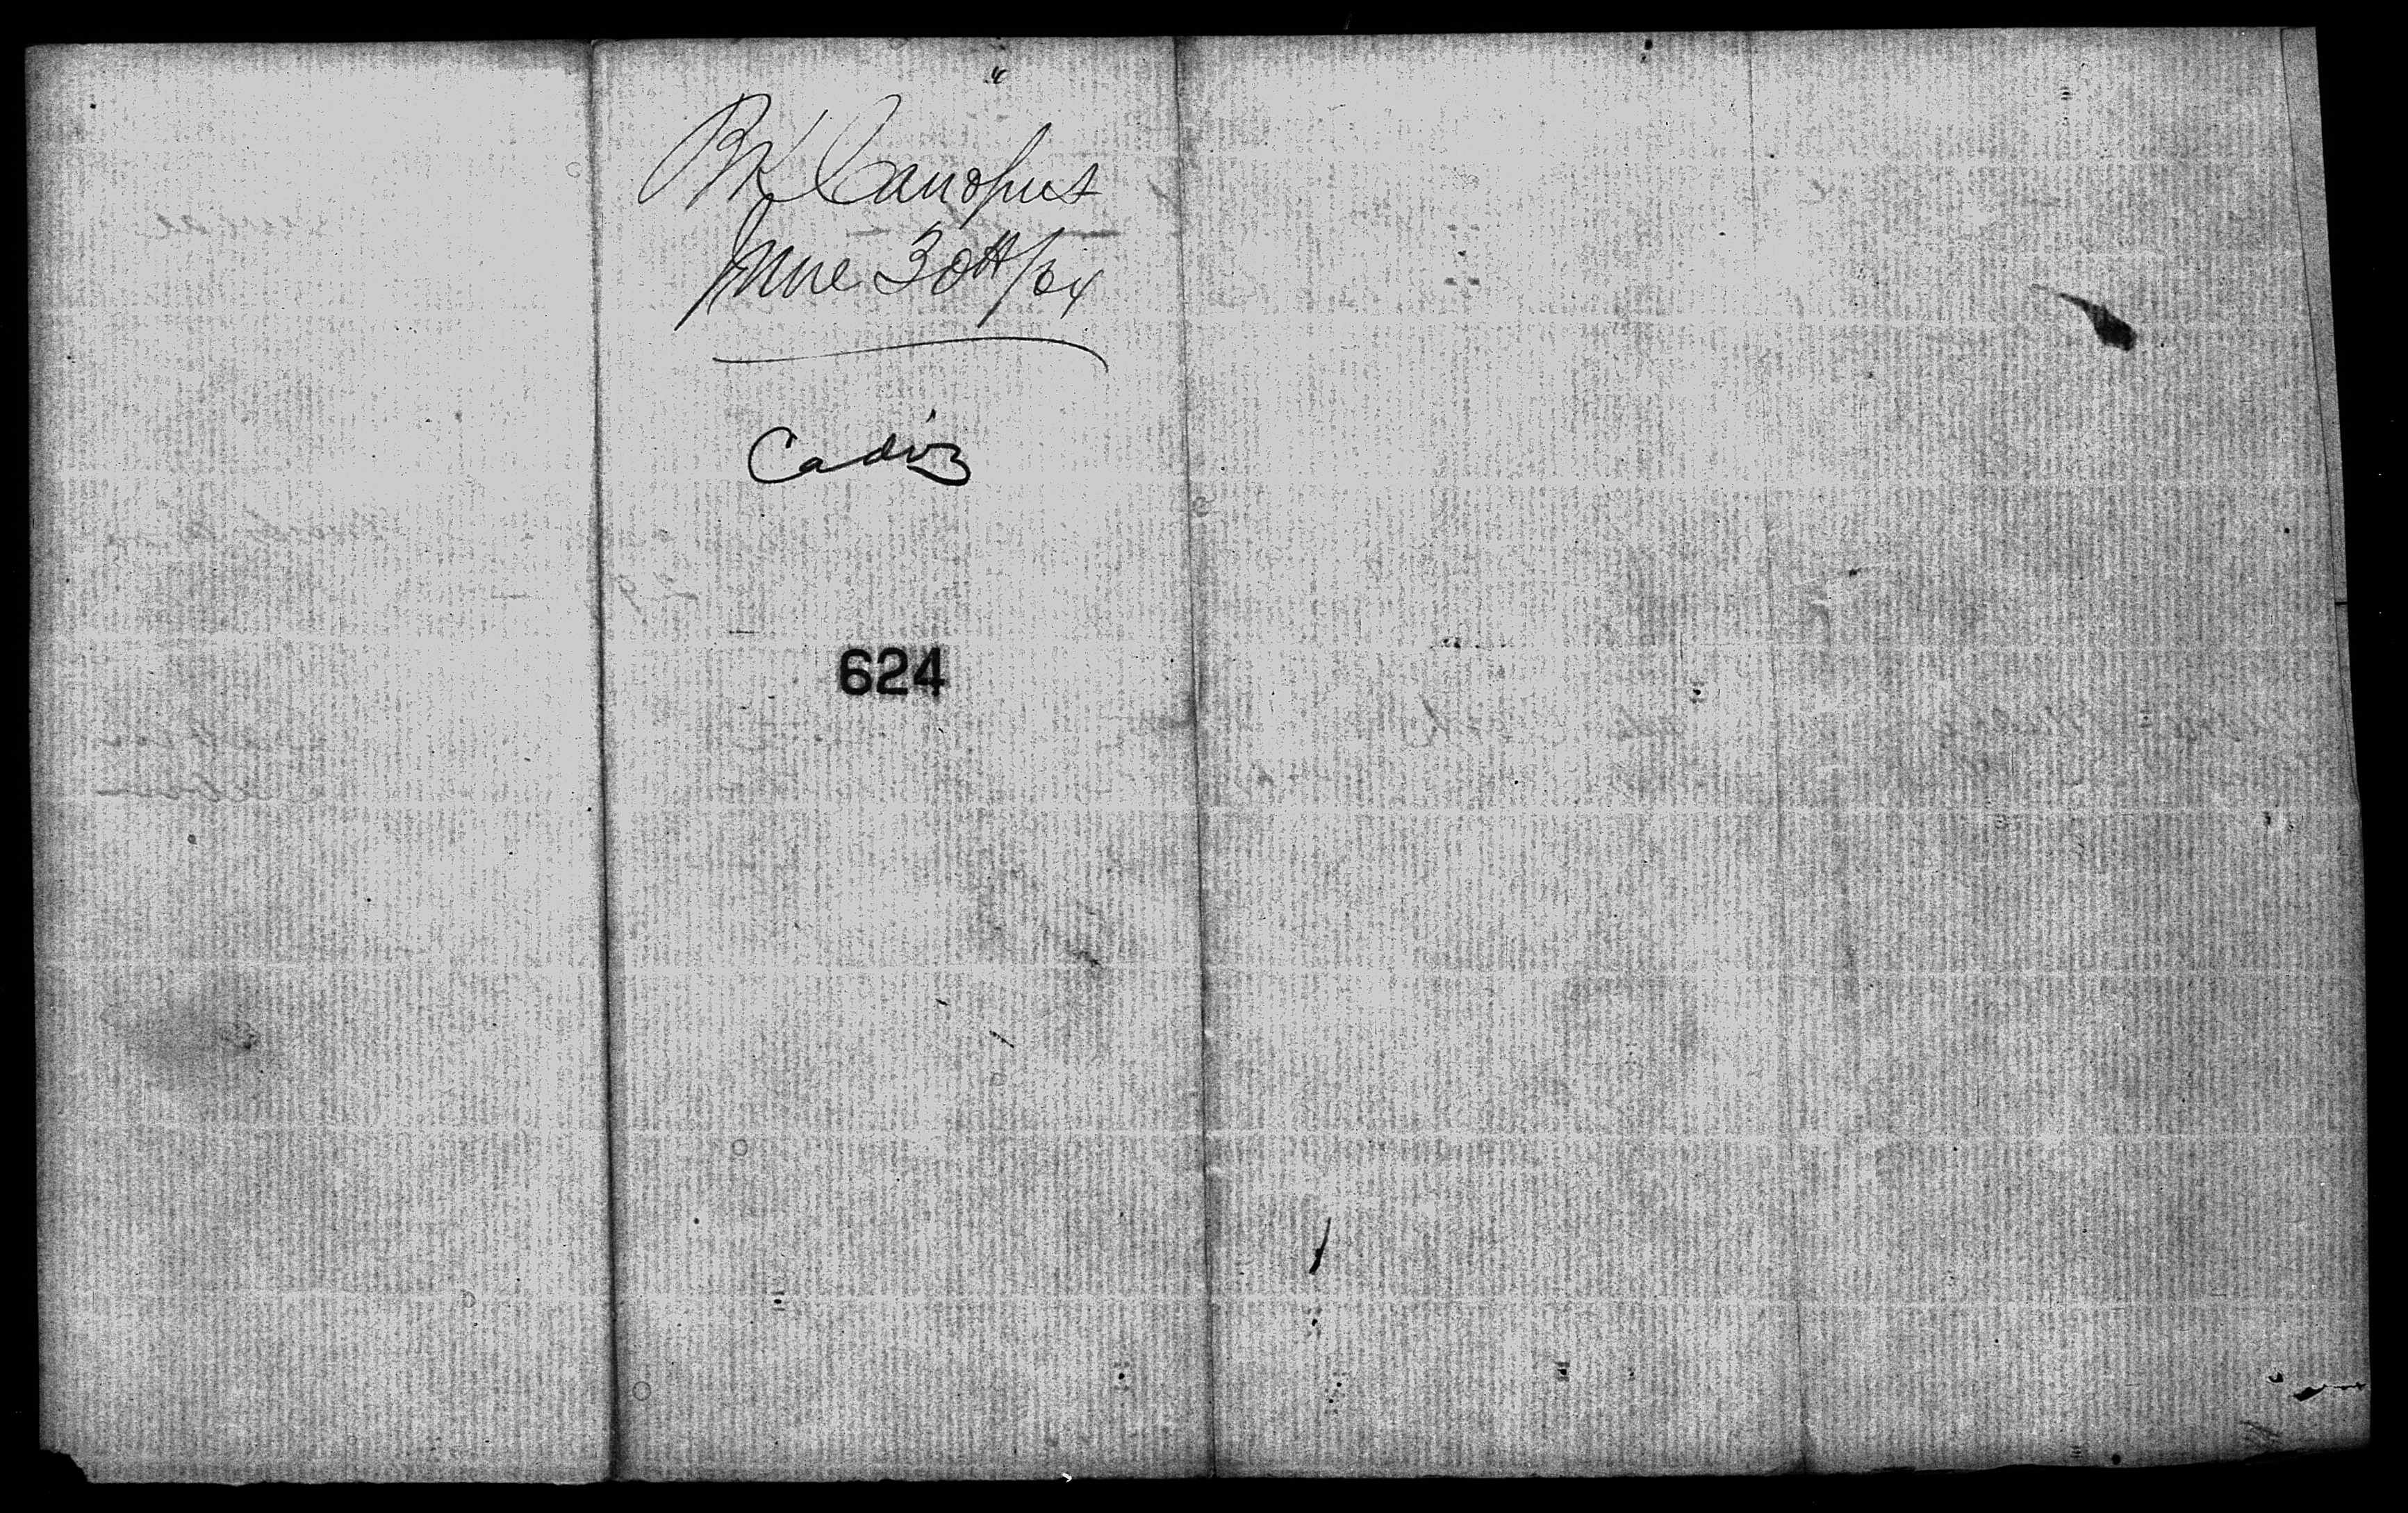 Bk Canopus
June 30th/64
Cadiz
624